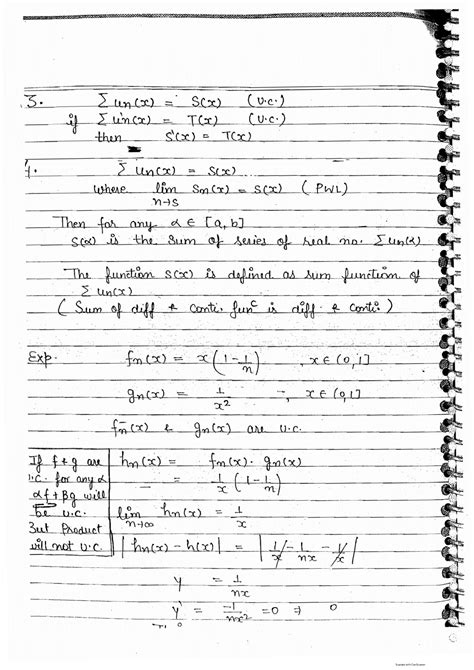 3. Σun(x) = S(x) (U.C.)
if Σu'n(x) = T(x) (U.C.)
then S'(x) = T(x)
4. Σun(x) = S(x)
where lim n→s Sn(x) = S(x) (PWL)
Then for any α ∈ [a, b]
S(α) is the sum of series of real no. Σun(α)
The function S(x) is defined as sum function of
Σun(x)
(Sum of diff & conti. func is diff. & conti.)
Exp. fn(x) = x(1-1/n) , x ∈ (0,1]
gn(x) = 1/x² , x ∈ (0,1]
fn(x) & gn(x) are u.c.
If f & g are
u.c. for any α
αf + βg will
be u.c.
But Product
will not u.c.
hn(x) = fn(x). gn(x)
= 1/x (1-1/n)
lim n→∞ hn(x) = 1/x
|hn(x) - h(x)| = |1/x - 1/nx - 1/x|
y = 1/nx
y' = -1/nx² = 0 ⇒ 0